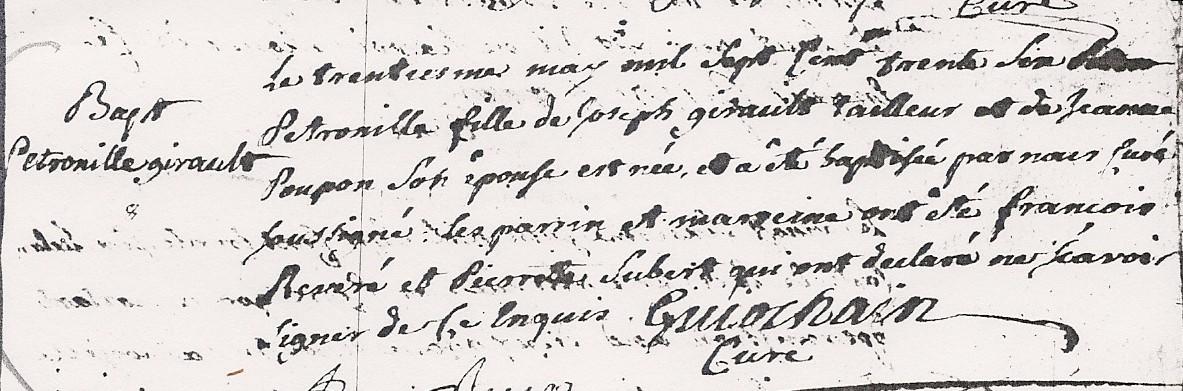 Curé
Le trentiesme may mil sept cent trente six
Bapt
Petronille girault
Petronille fille de Joseph girault tailleur et de Jeanne
Poupon son épouse est née, et a êté baptisée par nous Curé
soussigné. les parrin et marreine ont êté françois
Reveré et Pierrette Subert qui ont declaré ne sçavoir
signer de ce Enquis. Guiochain
Curé